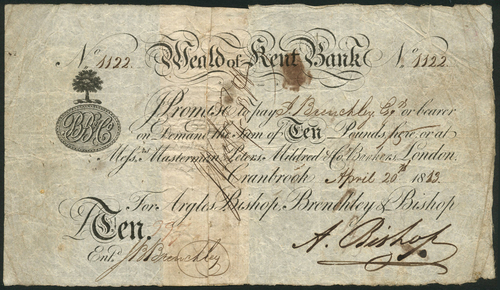 No. 1122. Weald of Kent Bank No. 1122.
I Promise to pay J. Brenchley Esqr. or bearer
on Demand the Sum of Ten Pounds, here or at
Messrs. Masterman Peters Mildred & Co. Bankers London.
Cranbrook April 20th 1813
For Argles Bishop, Brenchley & Bishop
£Ten.
Entd. J Brenchley
A. Bishop